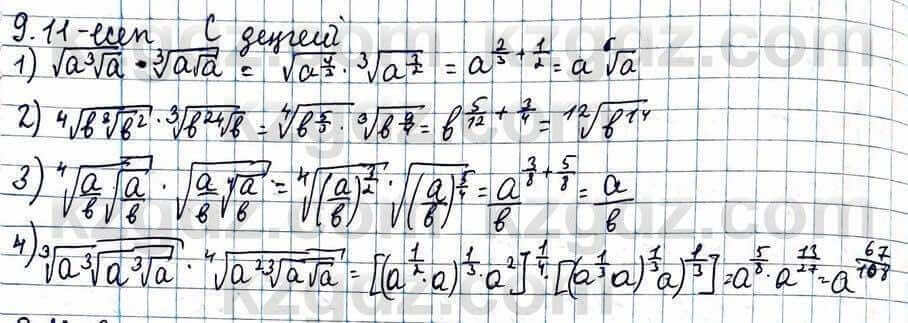 9.11-есеп С деңгей
1) √(a∛a) · ∛(a√a) = √(a^(4/3)) · ∛(a^(3/2)) = a^(2/3 + 1/2) = a ⁶√a
2) ⁴√(b ∛(b²)) · ∛(b² ⁴√b) = ⁴√(b^(5/3)) · ∛(b^(9/4)) = b^(5/12 + 3/4) = ¹²√(b¹⁴)
3) ⁴√(a/b √(a/b)) · √(a/b ⁴√(a/b)) = ⁴√((a/b)^(3/2)) · √((a/b)^(5/4)) = a/b^(3/8 + 5/8) = a/b
4) ∛(a∛(a∛a)) · ⁴√(a²∛(a√a)) = [(a^(1/2) · a)^(1/3) · a²]^(1/4) · [(a^(1/3) a)^(1/3) a)^(1/3)] = a^(5/8) · a^(13/27) = a^(67/108)